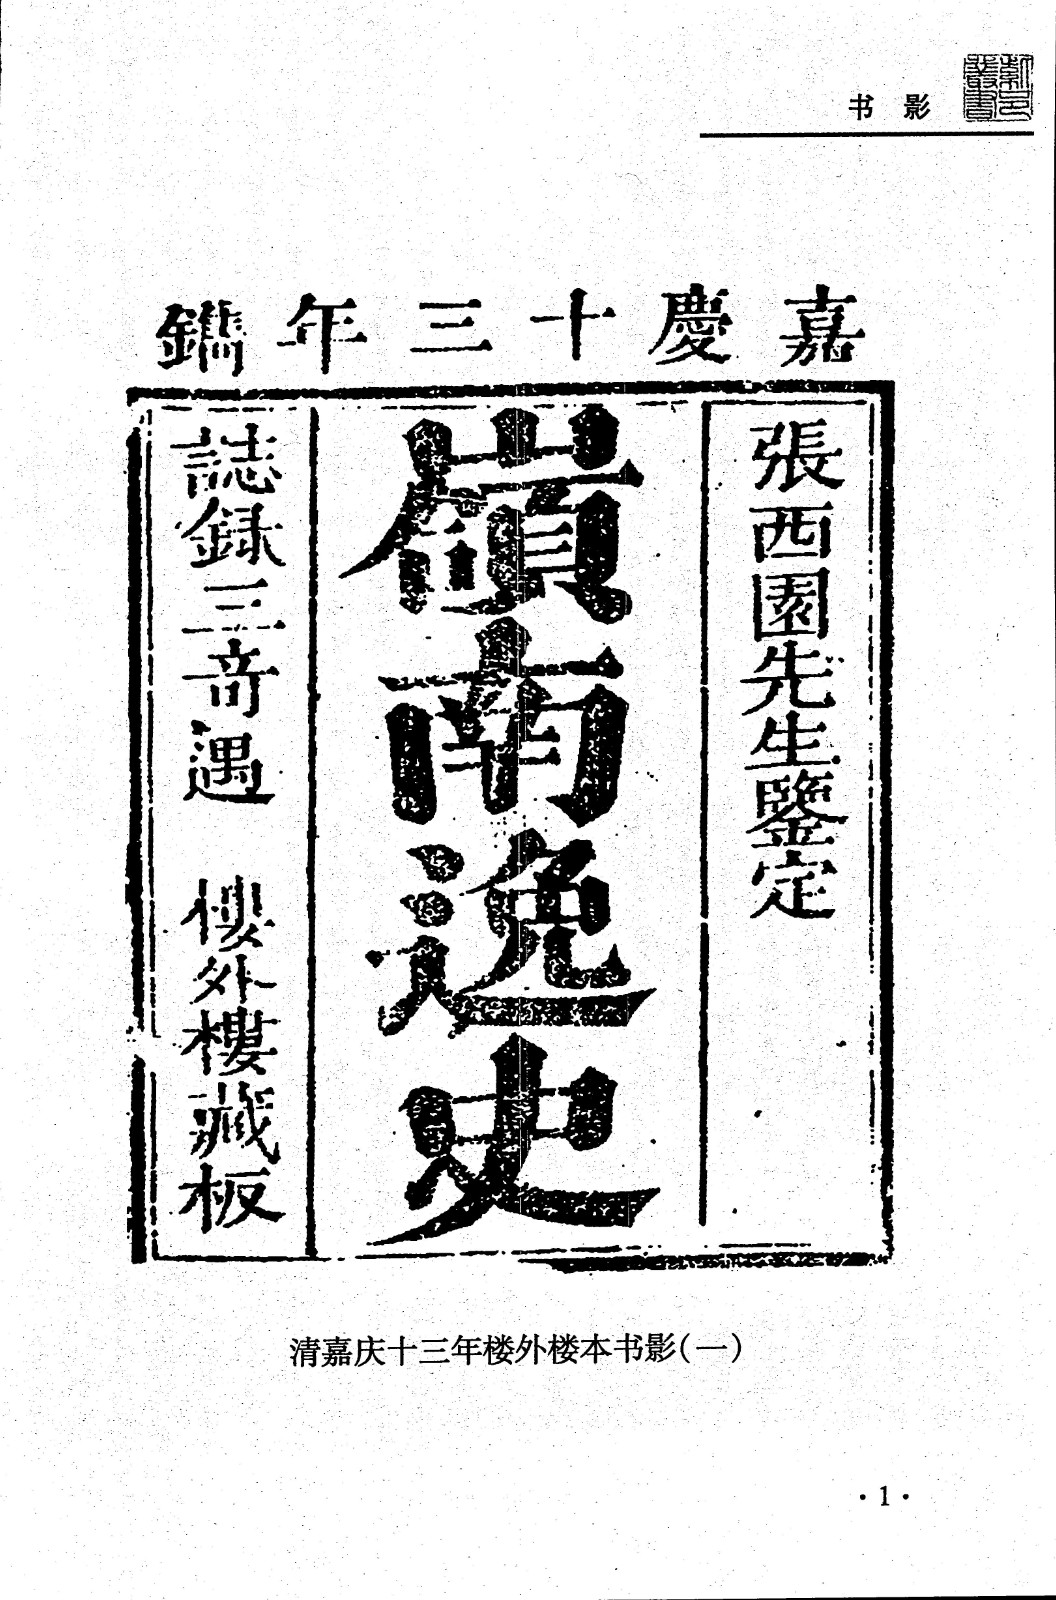 书影
嘉慶十三年鐫
張西園先生鑒定
嶺南逸史
誌録三奇遇 樓外樓藏板
清嘉庆十三年楼外楼本书影(一)
·1·